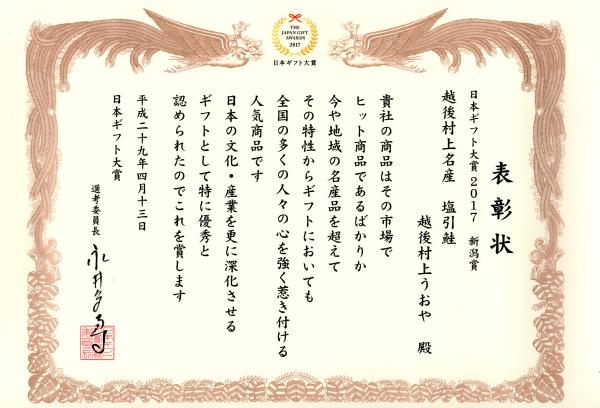 THE
JAPAN GIFT
AWARDS
2017
日本ギフト大賞
表彰状
日本ギフト大賞2017 新潟賞
越後村上名産 塩引鮭
越後村上うおや 殿
貴社の商品はその市場で
ヒット商品であるばかりか
今や地域の名産品を超えて
その特性からギフトにおいても
全国の多くの人々の心を強く惹き付ける
人気商品です
日本の文化・産業を更に深化させる
ギフトとして特に優秀と
認められたのでこれを賞します
平成二十九年四月十三日
日本ギフト大賞
選考委員長